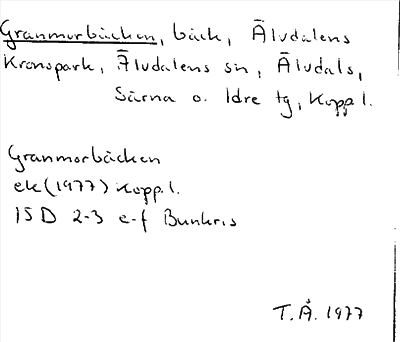 Granmorbäcken, bäck, Älvdalens
Kronopark, Älvdalens sn, Älvdals,
Särna o. Idre tg, Kopp l.
Granmorbäcken
ek (1977) Kopp. l.
15 D 2-3 e-f Bunkris
T. Å. 1977